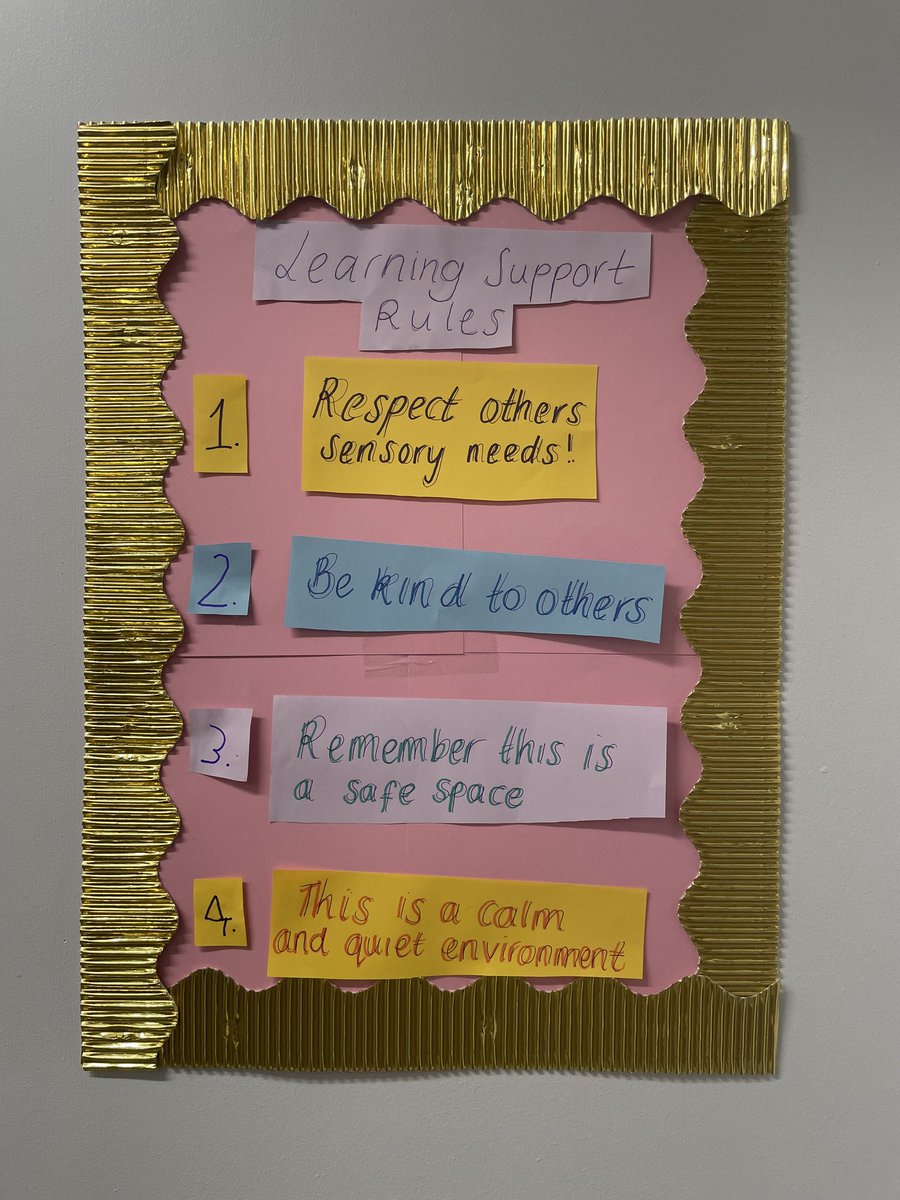 Learning Support
Rules
1.
Respect others
sensory needs!
2.
Be kind to others
3.
Remember this is
a safe space
4.
This is a calm
and quiet environment